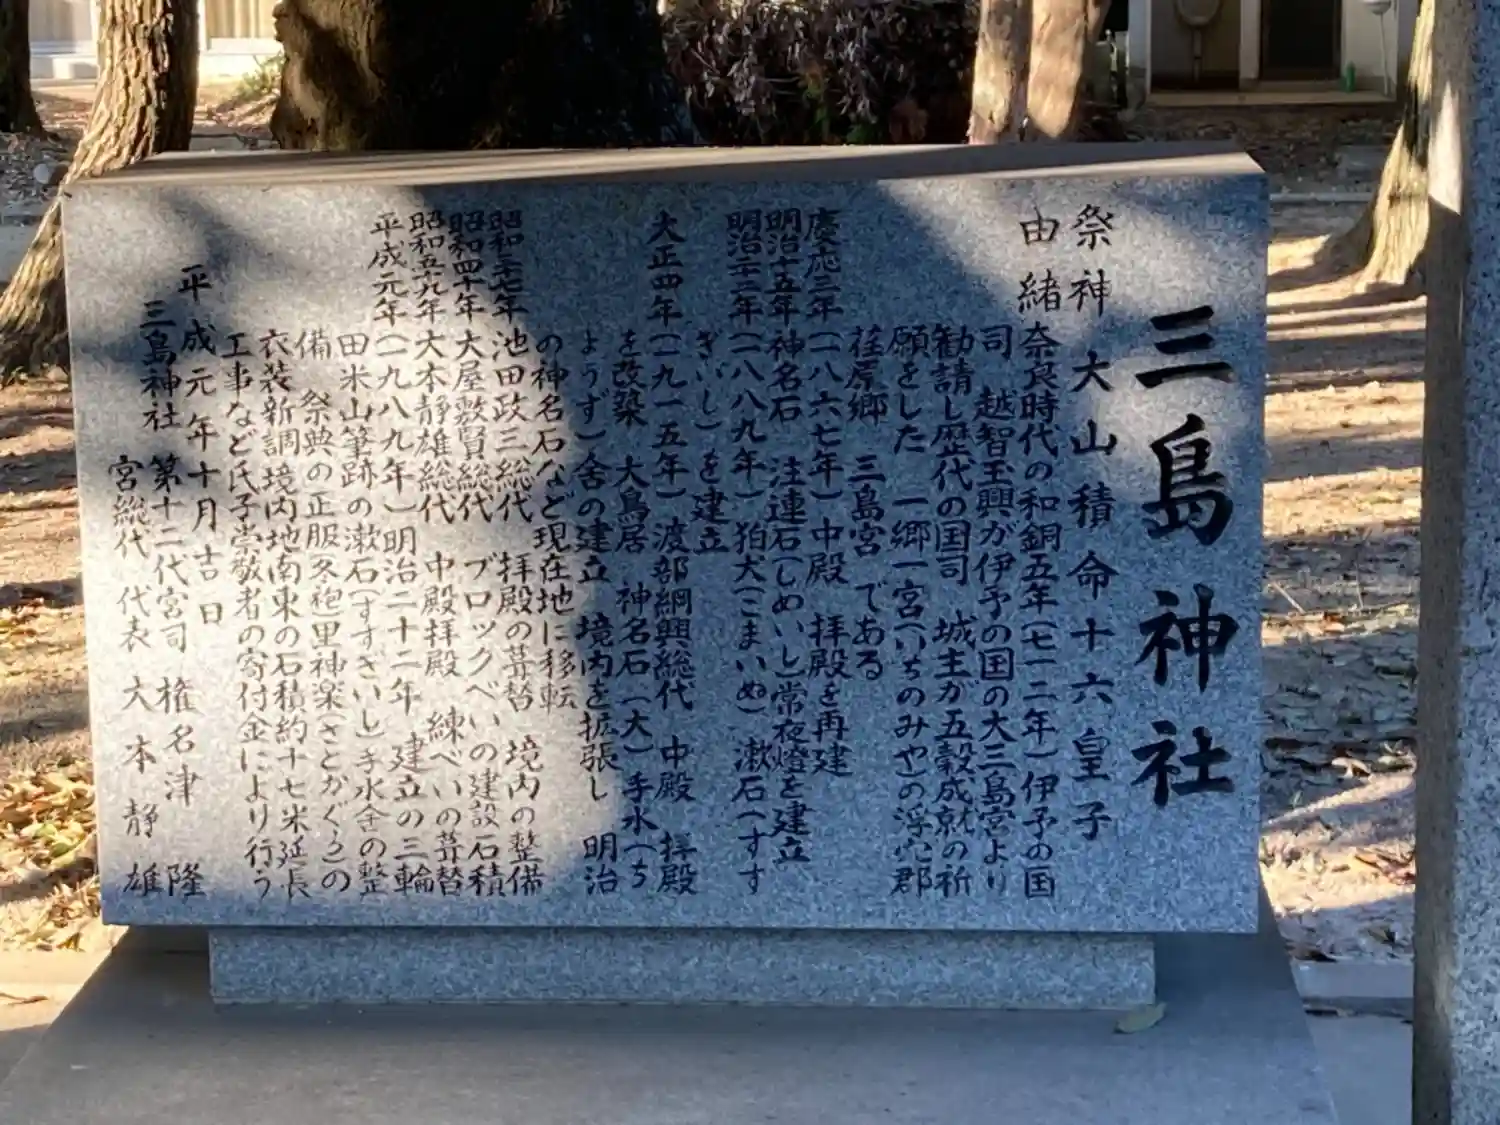 三島神社
祭神 大山積命 十六皇子
由緒 奈良時代の和銅五年(七一二年)伊予の国
司 越智玉興が伊予の国の大三島宮より
勧請し歴代の国司 城主が五穀成就の祈
願をした 一郷一宮(いちのみや)の浮穴郡
荏原郷 三島宮 である
慶応三年(一八六七年)中殿 拝殿を再建
明治十五年 神名石 注連石(しめいし)常夜燈を建立
明治二十二年(一八八九年)狛犬(こまいぬ)漱石(すす
ぎいし)を建立
大正四年(一九一五年)渡部綱興総代 中殿 拝殿
を改築 大鳥居 神名石(大)手水(ち
ょうず)舎の建立 境内を拡張し 明治
の神名石など現在地に移転
昭和三七年 池田政三総代 拝殿の葺替 境内の整備
昭和四十年 大屋敷賢総代 ブロックべいの建設石積
昭和五九年 大本静雄総代 中殿拝殿 練べいの葺替
平成元年(一九八九年)明治二十二年 建立の三輪
田米山筆跡の漱石(すすぎいし)手水舎の整
備 祭典の正服冬袍里神楽(さとかぐら)の
衣装新調境内地南東の石積約十七米延長
工事など氏子崇敬者の寄付金により行う
平成元年十月吉日
三島神社 第十二代宮司 権名津 隆
宮総代 代表 大本静雄